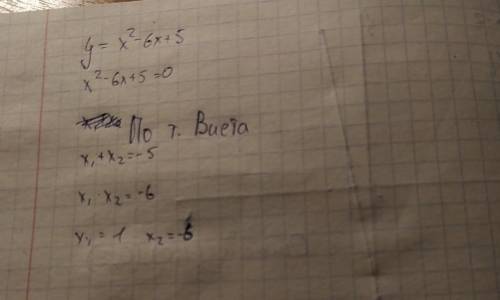 y = x²-6x+5
x²-6x+5=0
По т. Виета
x₁+x₂=-5
x₁ x₂=-6
x₁ = 1 x₂=-6